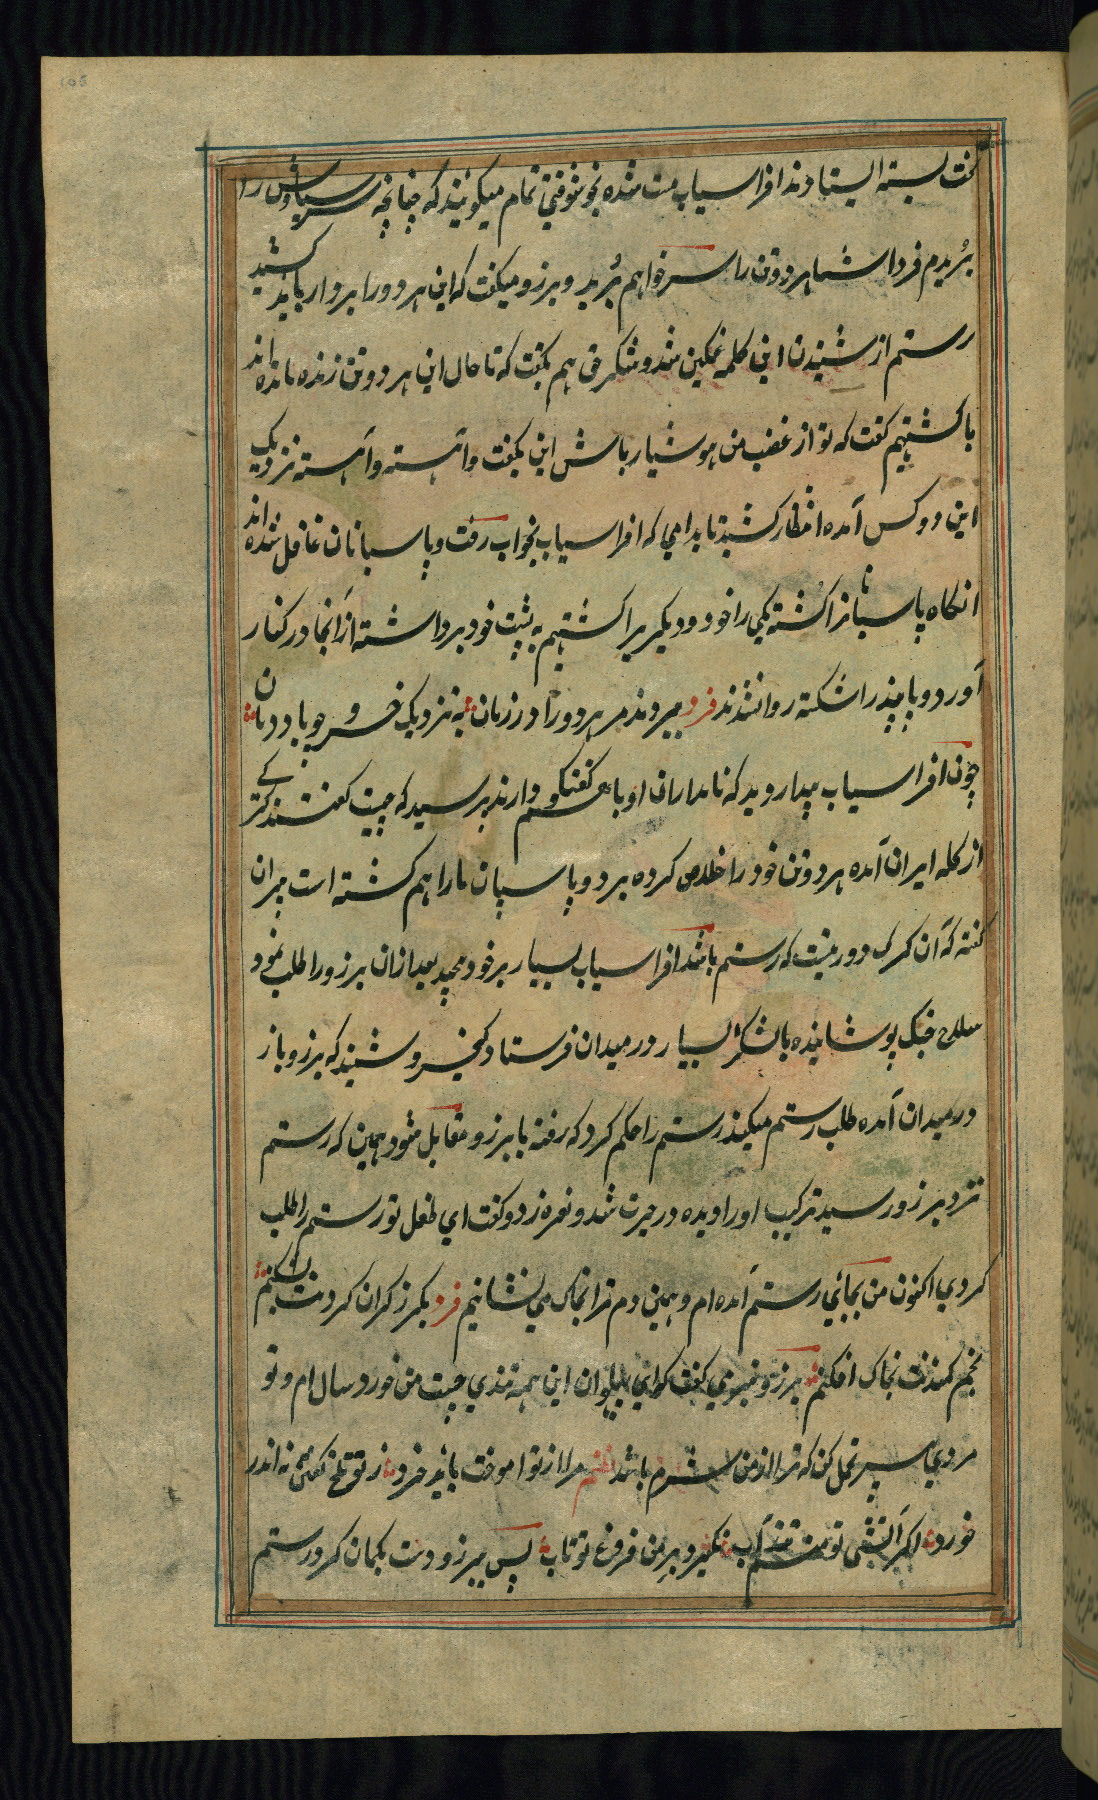 105
تخت بسته ایستادند افراسیاب مست شده بخوشوقتی تمام میکوئیند که چنانچه سر سیاوش را
بُریدم فردا شما هر دو تن را سر خواهم بُرید و برزو میکفت که این هر دو را بر دار باید کشید
رستم از شنیدن این کلمه غمکین شد و شکر حق هم بکفت که تا حال این هر دو تن زنده مانده اند
با کستهم کفت که تو از عقب من هوشیار باش این بکفت و آهسته و آهسته نزدیک
این دو کس آمده انتظار کشید تا بدامی که افراسیاب بخواب رفت و پاسبانان غافل شده اند
انکاه پاسبانانرا کشته یکی را خود و دیکریرا کستهم به پشت خود برداشته از آنجا در کنار
آورد و پابندرا شکسته روانشدند فرد ببردند مر هر دو را در زمان به نزدیک خسرو چو باد دمان
چون افراسیاب بیدار دید که نامداران او باهم کفتکو دارند پرسید که چیست کفتند کرکی
از کله ایران آمده هر دو تن خود را خلاص کرده برد و پاسبان مارا هم کشته است پیران
کفته که آن کرک دور نیست که رستم باشد افراسیاب بسیار بر خود پیچید بعد از آن برزو را طلب نمود
سلاح جنک پوشانیده با لشکر بسیار در میدان فرستاد کیخسرو شنید که برزو باز
در میدان آمده طلب رستم میکیند رستم را حکم کرد که رفته با برزو مقابل شود همین که رستم
نزد برزو رسید ترکیب او را دیده در حیرت شد و نعره زد و کفت ای طفل تو رستم را طلب
کردی اکنون من بجائی رستم آمده ام و همین دم ترا بخاک می نشانیم فرد بکرز کران کردنت بشکنم
بخم کمندت بخاک افکنم برزو بنرمی کفت که ای پهلوان این همه تندی چیست من خورد سال ام و تو
مردی پیر تحمل کن که ترا از من شرم باشد نظم مرا از تو آموخت باید خرد ز تو تلخ کفتن نه اندر
خورد اکر آتشی تو منم تند آب نکیرد بر من فروغ تو تاب پس برزو دست بکمان کرد رستم